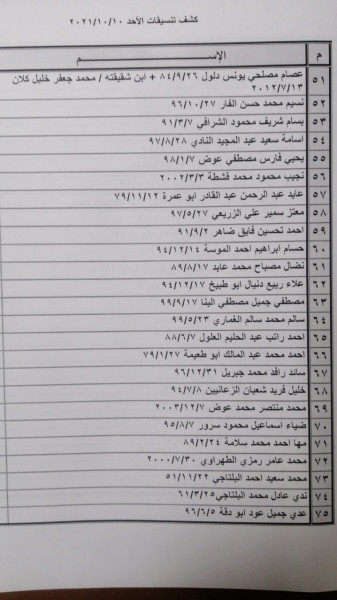 كشف تنسيقات الأحد ٢٠٢١/١٠/١٠
م الإســـم
٥١ عصام مصلحي يونس دلول ٨٤/٩/٢٦ + ابن شقيقته / محمد جعفر خليل كلان ٢٠١٢/٧/١٣
٥٢ نسيم محمد حسن الفار ٩٦/١٠/٢٧
٥٣ بسام شريف محمود الشرافي ٩١/٣/٧
٥٤ اسامة سعيد عبد المجيد النادي ٩٧/٨/٢٨
٥٥ يحيي فارس مصطفي عوض ٩٨/١/٧
٥٦ نجيب محمود محمد قشطة ٢٠٠٢/٣/٣
٥٧ عايد عبد الرحمن عبد القادر ابو عمرة ٧٩/١١/١٢
٥٨ معتز سمير علي الزريعي ٩٧/٥/٢٧
٥٩ احمد تحسين فايق ضاهر ٩١/٩/٢
٦٠ حسام ابراهيم احمد الموسة ٩٤/١٢/١٤
٦١ نضال مصباح محمد عابد ٨٩/٨/١٧
٦٢ علاء ربيع دنيال ابو طبيخ ٩٤/١٢/١٧
٦٣ مصطفي جميل مصطفي البنا ٩٩/٩/١٧
٦٤ سالم محمد سالم الغماري ٩٩/٥/٢٣
٦٥ احمد راتب عبد الحليم العلول ٨٨/٦/٧
٦٦ احمد محمد عبد المالك ابو طعيمة ٧٩/١/٢٧
٦٧ سائد رافد محمد جبريل ٩٦/١٢/٣١
٦٨ خليل فريد شعبان الزعانين ٩٤/٧/٨
٦٩ محمد منتصر محمد عوض ٢٠٠٣/١٢/٧
٧٠ ضياء اسماعيل محمود سرور ٩٥/٨/٧
٧١ مها احمد محمد سلامة ٨٩/٢/٢٤
٧٢ محمد عامر رمزي الطهراوي ٢٠٠٠/٧/٣٠
٧٣ محمد سعيد احمد البلتاجي ٥١/١١/٢٢
٧٤ ندي عادل محمد البلتاجي ٦١/٣/٢٥
٧٥ عدي جميل عود ابو دقة ٩٦/٦/٥